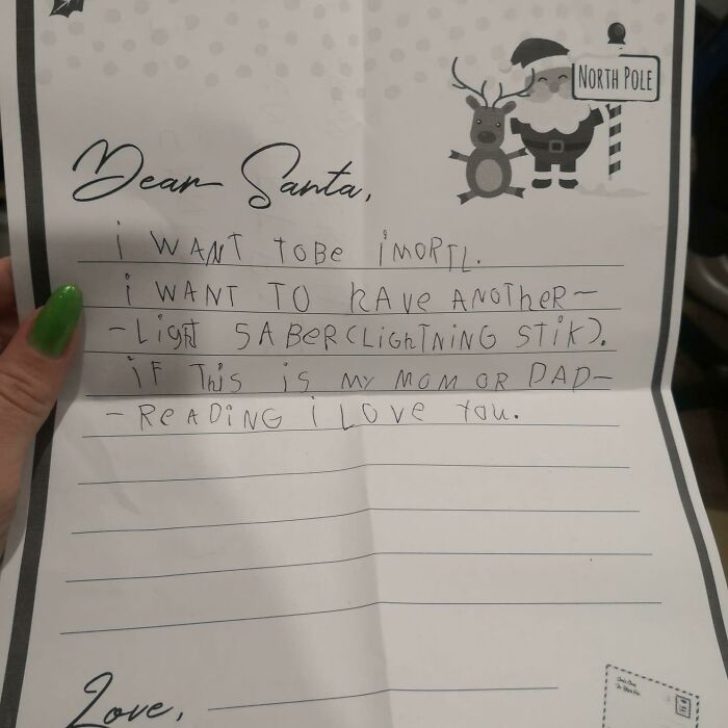 NORTH POLE
Dear Santa,
i WANT TOBe iMORTL.
i WANT TO hAve ANOTheR-
-Light SABeR(LiGhTNiNG STiK).
iF This iS MY MOM OR DAD-
-ReADiNG i LOVe You.
Love,